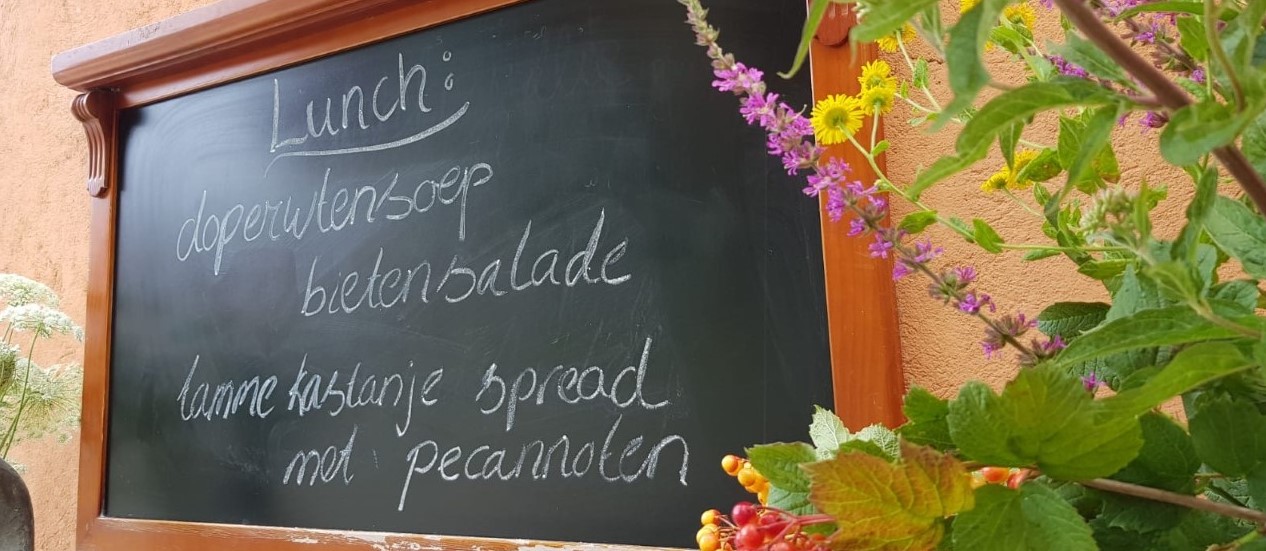 Lunch:
doperwtensoep
bietensalade
tamme kastanje spread
met pecannoten